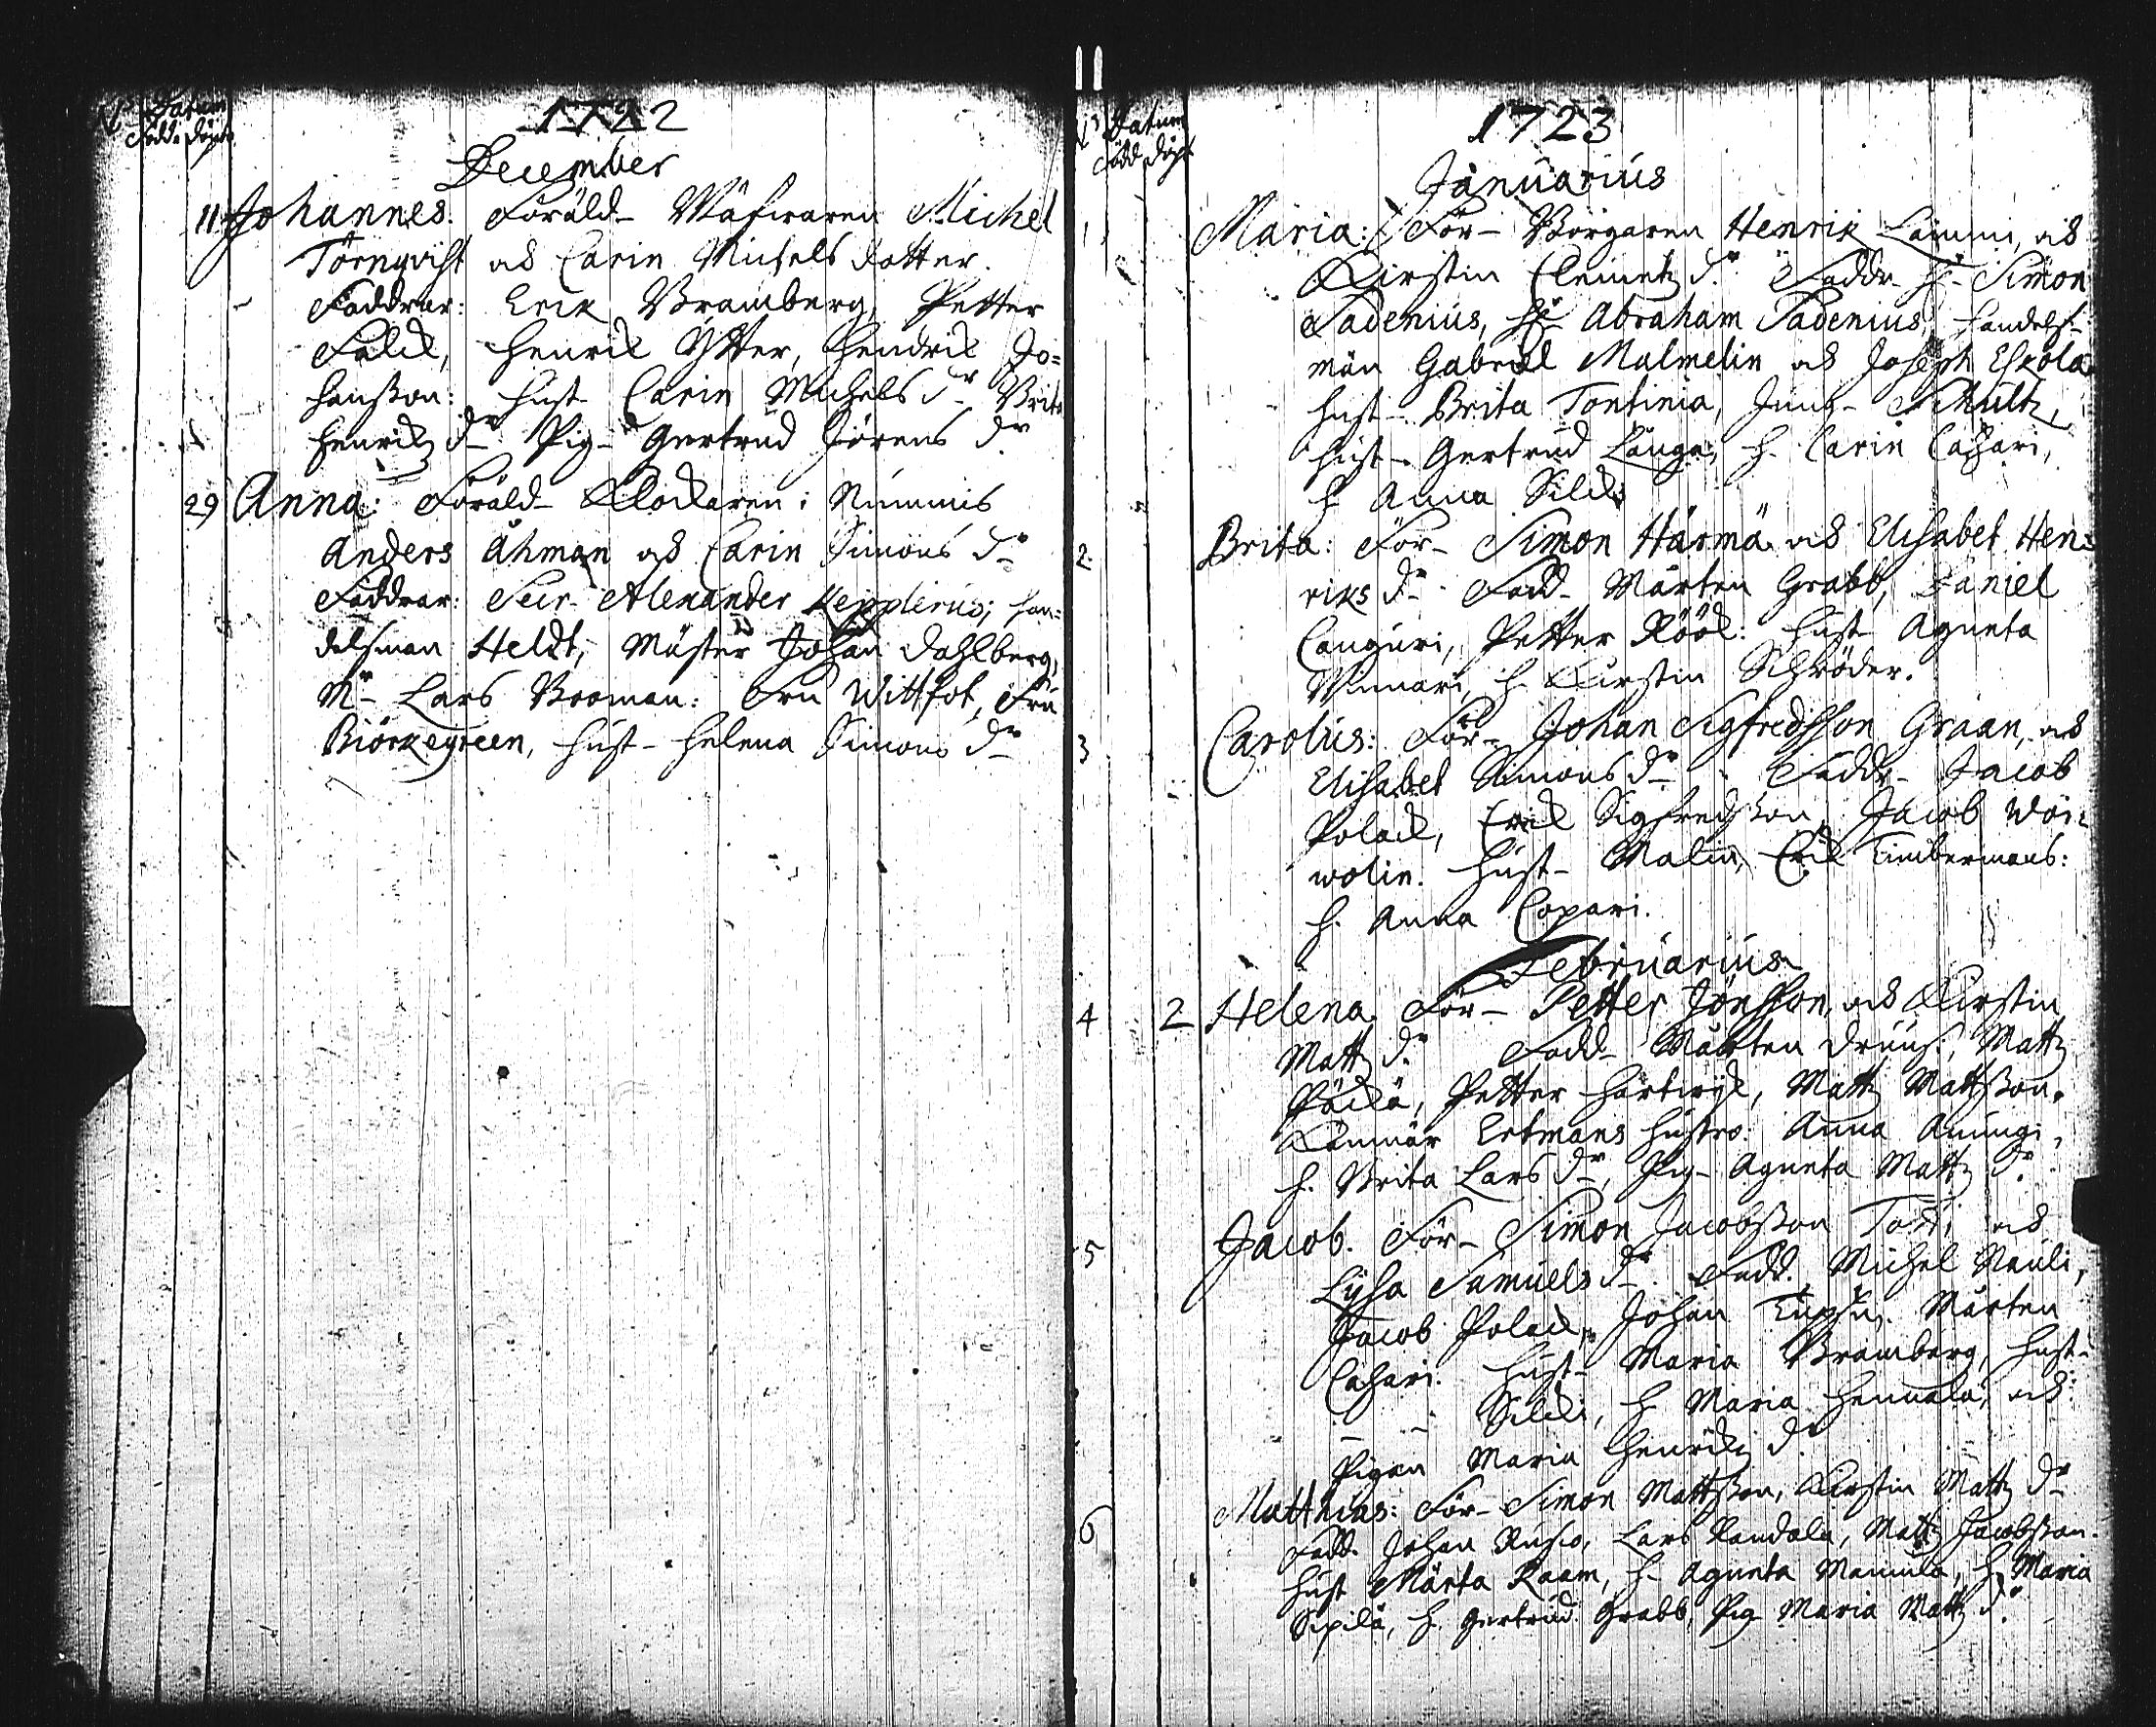 N:o Datum
Född. Döpt.
1722
December
11 Johannes. Föräld- Wäfwaren Michel
Törnqvist och Carin Michels dotter.
Faddrar: Erik Bramberg, Petter
Falck, Henrik Ytter, Hendrik Jo=
hansson: Hust- Carin Michels dr Brita
Henriks dr Pig- Gertrud Jörens dr
29 Anna: Föräld- Klockaren i Nummis
Anders Åhman och Carin Simons dr
Faddrar: Secr- Alexander Kepplerus; Han=
delsman Heldt, Mäster Johan Dahlberg,
Mr Lars Booman: Fru Wittfot, Fru
Biörkegreen, Hust- Helena Simons dr
N:o Datum
Född Döpt
1723
Januarius
1 Maria: För- Borgaren Henrik Lammi, och
Kirstin Clemetz dr. Faddr- H- Simon
Padenius, Hr Abraham Padenius, Handels-
män Gabriel Malmelin och Joseph Eskola.
Hust- Brita Tontinia, Jung- Schultz,
Hust- Gertrud Länge, H. Carin Casari,
H Anna Silcki
2 Brita: För- Simon Härmä och Elisabet Hen=
riks dr Fadd- Mårten Grabb, Daniel
Canguri, Petter Röök: Hust- Agneta
Winnari H- Kirstin Schröder.
3 Carolus: För- Johan Sigfredsson Graan, och
Elisabet Simons dr Faddr- Jacob
Polack, Erik Sigfredsson, Jacob Woi=
wolin. Hust- Malin, Erik Timbermans:
H. Anna Copari.
Februarius
4 2 Helena För- Petter Jönsson, och Kirstin
Matz dr Fadd- Mårten Druus, Matz
Päckä, Petter Hartwyk, Matz Mattsson.
Kämnär Ertmans hustro: Anna Aningi,
H. Brita Lars dr, Pig- Agneta Matz dr
5 Jacob. För- Simon Jacobsson Tosti och
Lisa Samuels dr. Fadd. Michel Nauli,
Jacob Polack, Johan Mårten
Casari. Hust- Maria Bramberg, Hust-
- - Silcki, H Maria Hennala, och
Pigan Maria Henriks dr
6 Matthias: För- Simon Mattsson, Kirstin Matz dr
Fadd- Johan Rusco, Lars Randala, Matz Jacobsson.
Hust Märta Raam, H- Agneta Mannila, H. Maria
Sipilä, H. Gertrud Grabb, Pig Maria Matz dr